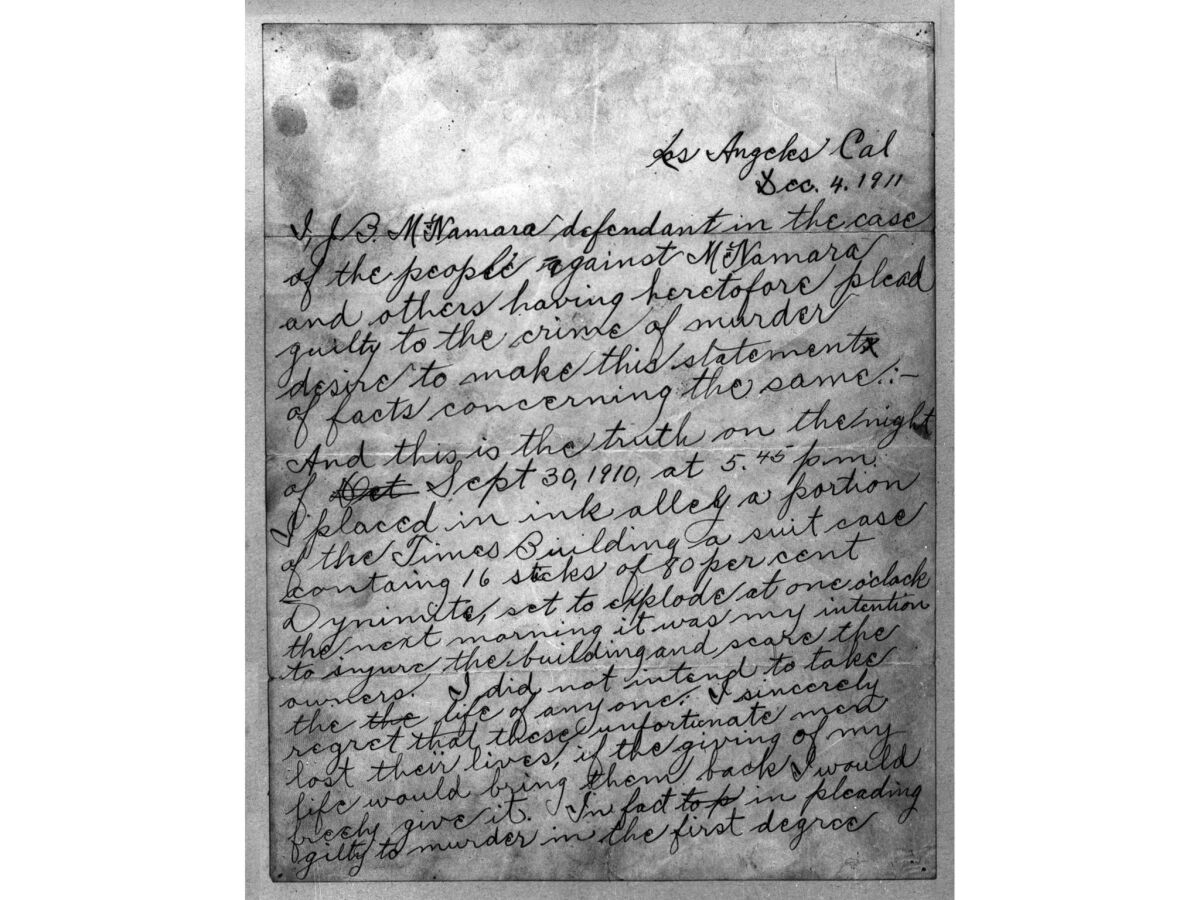 Los Angeles Cal
Dec. 4. 1911
I, J. B. McNamara defendant in the case
of the people against McNamara
and others having heretofore plead
guilty to the crime of murder
desire to make this statement
of facts concerning the same:-
And this is the truth on the night
of Oct Sept 30, 1910, at 5.45 p.m.
I placed in ink alley, a portion
of the Times Building, a suit case
containg 16 sticks of 80 per cent
Dynimite, set to explode at one o'clock
the next morning it was my intention
to injure the building and scare the
owners. I did not intend to take
the the life of anyone. I sincerely
regret that these unfortunate men
lost their lives, if the giving of my
life would bring them back I would
freely give it. In fact to in pleading
gilty to murder in the first degree